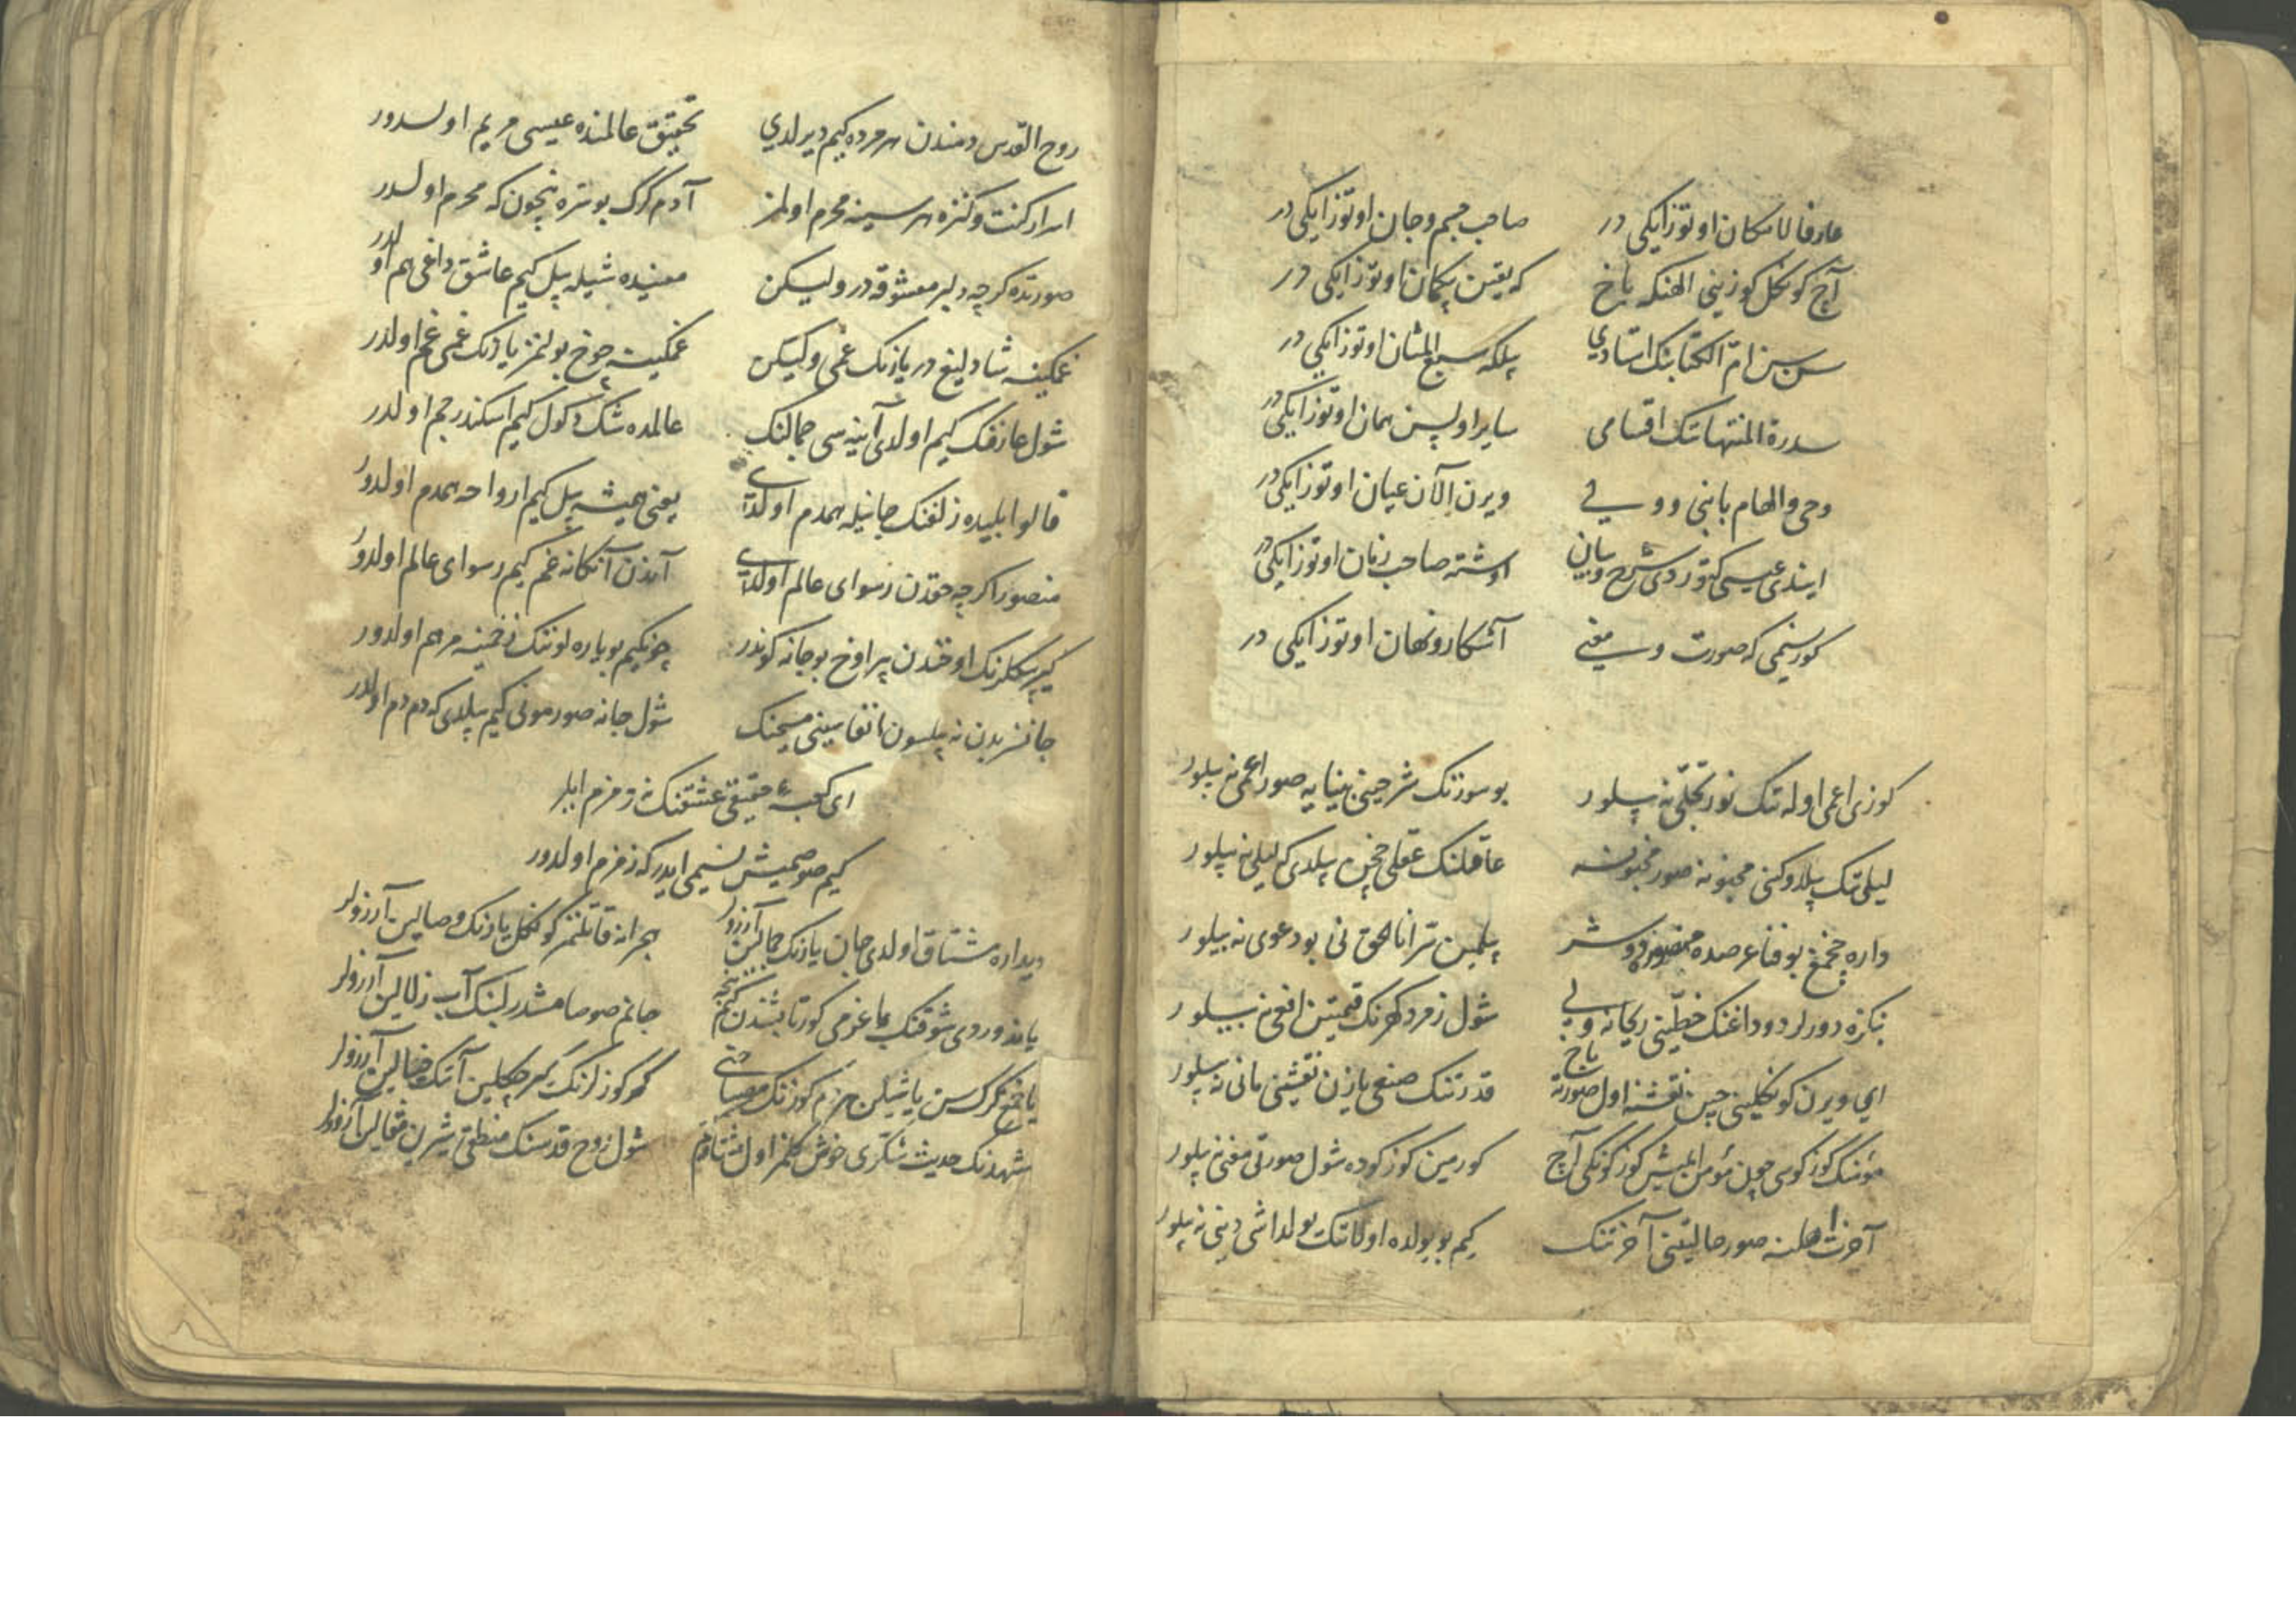 عارفا لامکان اوتوز ایکی در صاحب جسم و جان اوتوز ایکی در
آچ کوکل کوزینی الهنکه باخ که یقین بیکمان اوتوز ایکی در
سن سن ام الکتابنک استادی بلکه سبع المثان اوتوز ایکی در
سدرة المنتهانک اقسامی سایر اولسن همان اوتوز ایکی در
وحی و الهام با نبی و ولی ویرن الآن عیان اوتوز ایکی در
ایندی عیسی کتوردی شرح و بیان اوشته صاحب زمان اوتوز ایکی در
کور نسیمی که صورت و معنی آشکار و نهان اوتوز ایکی در
کوزی اعمی اوله نک نور تجلی نه بیلور بو سوزنک شرحینی بینایه صور اعمی نه بیلور
لیلی نک بیلدوکنی مجنونه صور مجنونه عاقلنک عقلی چخن بیلدی که لیلی نه بیلور
داره چخمغ بو فنا عرصده منصور دوشر بیلمین سر انا الحق نی بو دعوی نه بیلور
بکزه دورلر دوداغنک خطینی ریحانه ولی شول زمرد کهرنک قیمتین افعی نه بیلور
ای ویرن کوکلینی چین نقشنه اول صورته باخ قدرتنک صنعی یازن نقشینی مانی نه بیلور
مؤمنک کوزکوسی چون مؤمن ایمیش کوزکونکی آچ کورمین کوزکوده شول صورتی معنی نه بیلور
آخرت اهلنه صور حالتینی آخرتنک کیم بو یولده اولانک یولداشی دینی نه بیلور
روح القدس دمندن هر مرده کیم دیرلدی تحقیق عالمنده عیسی مریم اولدور
اسرار کنت و کنزه هر سینه محرم اولمز آدم کرک بو سره نچون که محرم اولدر
صورتده کرچه دلبر معشوقه در ولیکن معنیده شیله بیل کیم عاشق داغی هم اولدر
غمکینه شادلیغ در یارنک غمی ولیکن غمکینه چوخ بولنمز یارنک غمی غم اولدر
شول عارفنک کیم اولدی آینه سی جمالنک عالمده شک دکول کیم اسکندر جم اولدر
قالوا بلییده زلفنک جانیله همدم اولدی یعنی همیشه بیل کیم ارواحه همدم اولدور
منصور اکرچه حقدن رسوای عالم اولدی آندن آنکا نه غم کیم رسوای عالم اولدور
کیرپیکلرنک اوخندن بیر اوخ بو جانه کوندر چونکیم بو یاره لونک زخمینه مرهم اولدور
جانسز بدن نه بیلسون انفاسینی مسیحنک شول جانه صور مونی کیم بیلدی که دم دم اولدر
ای کعبهء حقیقی عشقنک نه زمزم ایلر
کیم صوصمیش نسیمی ایدر که زمزم اولدور
دیداره مشتاق اولدی جان یارنک جمالین آرزولر هجرانه قاتلنمز کوکل یارنک وصالین آرزولر
یاندوردی شوقنک باغرمی کور تابشندن کیم نجه جانم صوصامشدر لبنک آب زلالین آرزولر
یاغمغ کرک سن یاشیلن هر دم کوزنک کهر کوزلرنک کیرپیکلین آنک خیالین آرزولر
شهدنک حدیث شکری خوش کلمز اول مشتاقه شول روح قدسنک منطقی شیرین مقالین آرزولر